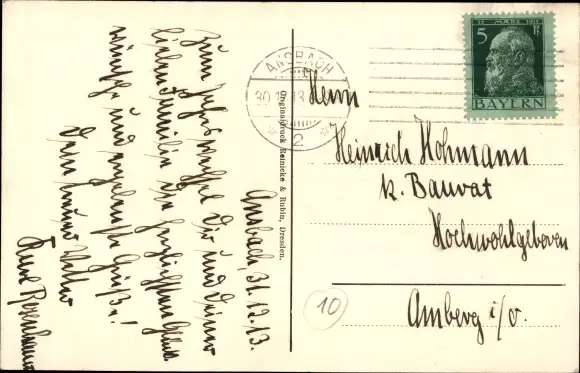 Ansbach, 31.12.13.
Zum Jahreswechsel Dir und Deiner
lieben Familie die herzlichsten Glück-
wünsche und ergebenste Grüße!
Dein treuer Vetter
Originaldruck Reinicke & Rubin, Dresden.
ANSBACH
30
13
2
17. MÄRZ 1911
5 Pf
BAYERN
Herrn
Heinrich Hohmann
k. Baurat
Hochwohlgeboren
Amberg i/O.
10